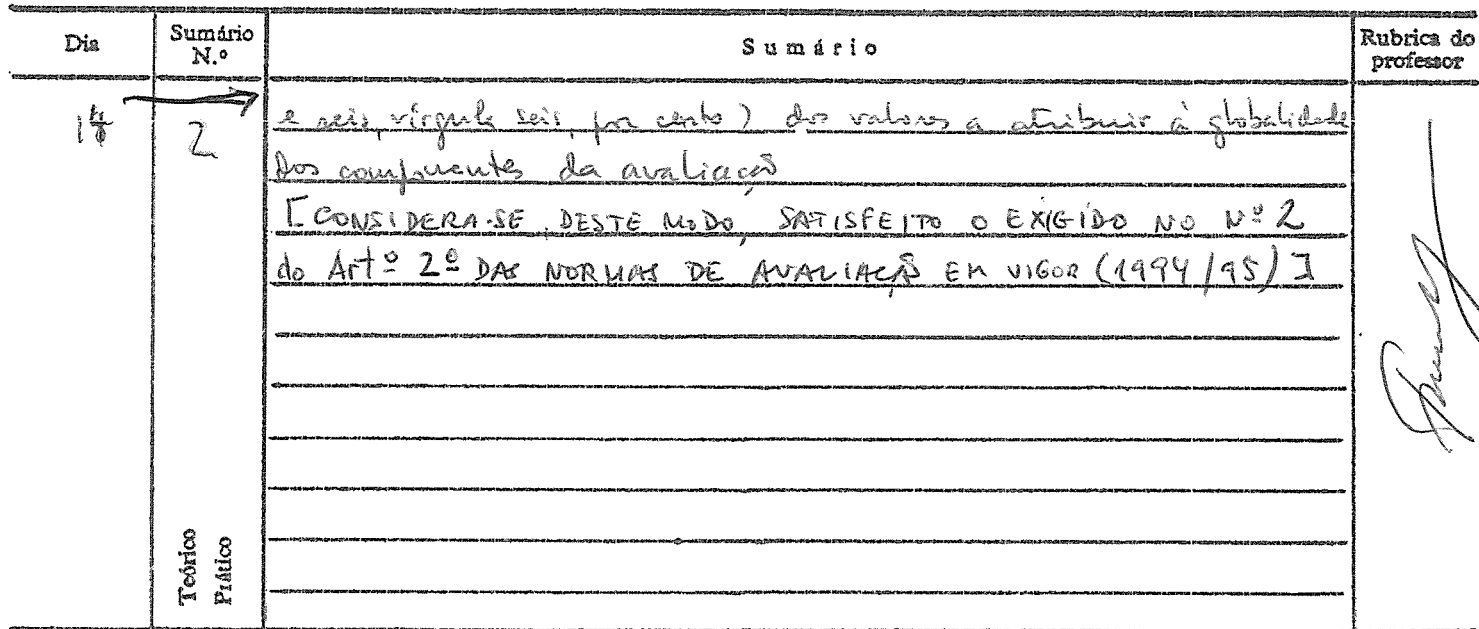 Dia Sumário N.º Sumário Rubrica do professor
2 e seis, vírgula seis, por cento) dos valores a atribuir à globalidade
dos componentes da avaliação
[CONSIDERA-SE, DESTE MODO, SATISFEITO O EXIGIDO NO Nº 2
do Artº 2º DAS NORMAS DE AVALIAÇÃO EM VIGOR (1994/95)]
Teórico
Prático